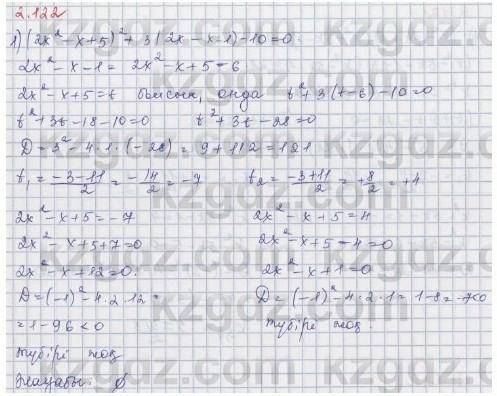 2.122
1) (2x² - x + 5)² + 3(2x - x - 1) - 10 = 0
2x² - x - 1 = 2x² - x + 5 - 6
2x² - x + 5 = t болсын, онда t² + 3(t - 6) - 10 = 0
t² + 3t - 18 - 10 = 0 t² + 3t - 28 = 0
D = 3² - 4 · 1 · (-28) = 9 + 112 = 121
t₁ = (-3 - 11)/2 = -14/2 = -7 t₂ = (-3 + 11)/2 = +8/2 = +4
2x² - x + 5 = -7 2x² - x + 5 = 4
2x² - x + 5 + 7 = 0 2x² - x + 5 - 4 = 0
2x² - x + 12 = 0. 2x² - x + 1 = 0
D = (-1)² - 4 · 2 · 12 = D = (-1)² - 4 · 2 · 1 = 1 - 8 = -7 < 0
= 1 - 96 < 0 түбірі жоқ.
түбірі жоқ
Жауабы: ∅
kzgdz.com